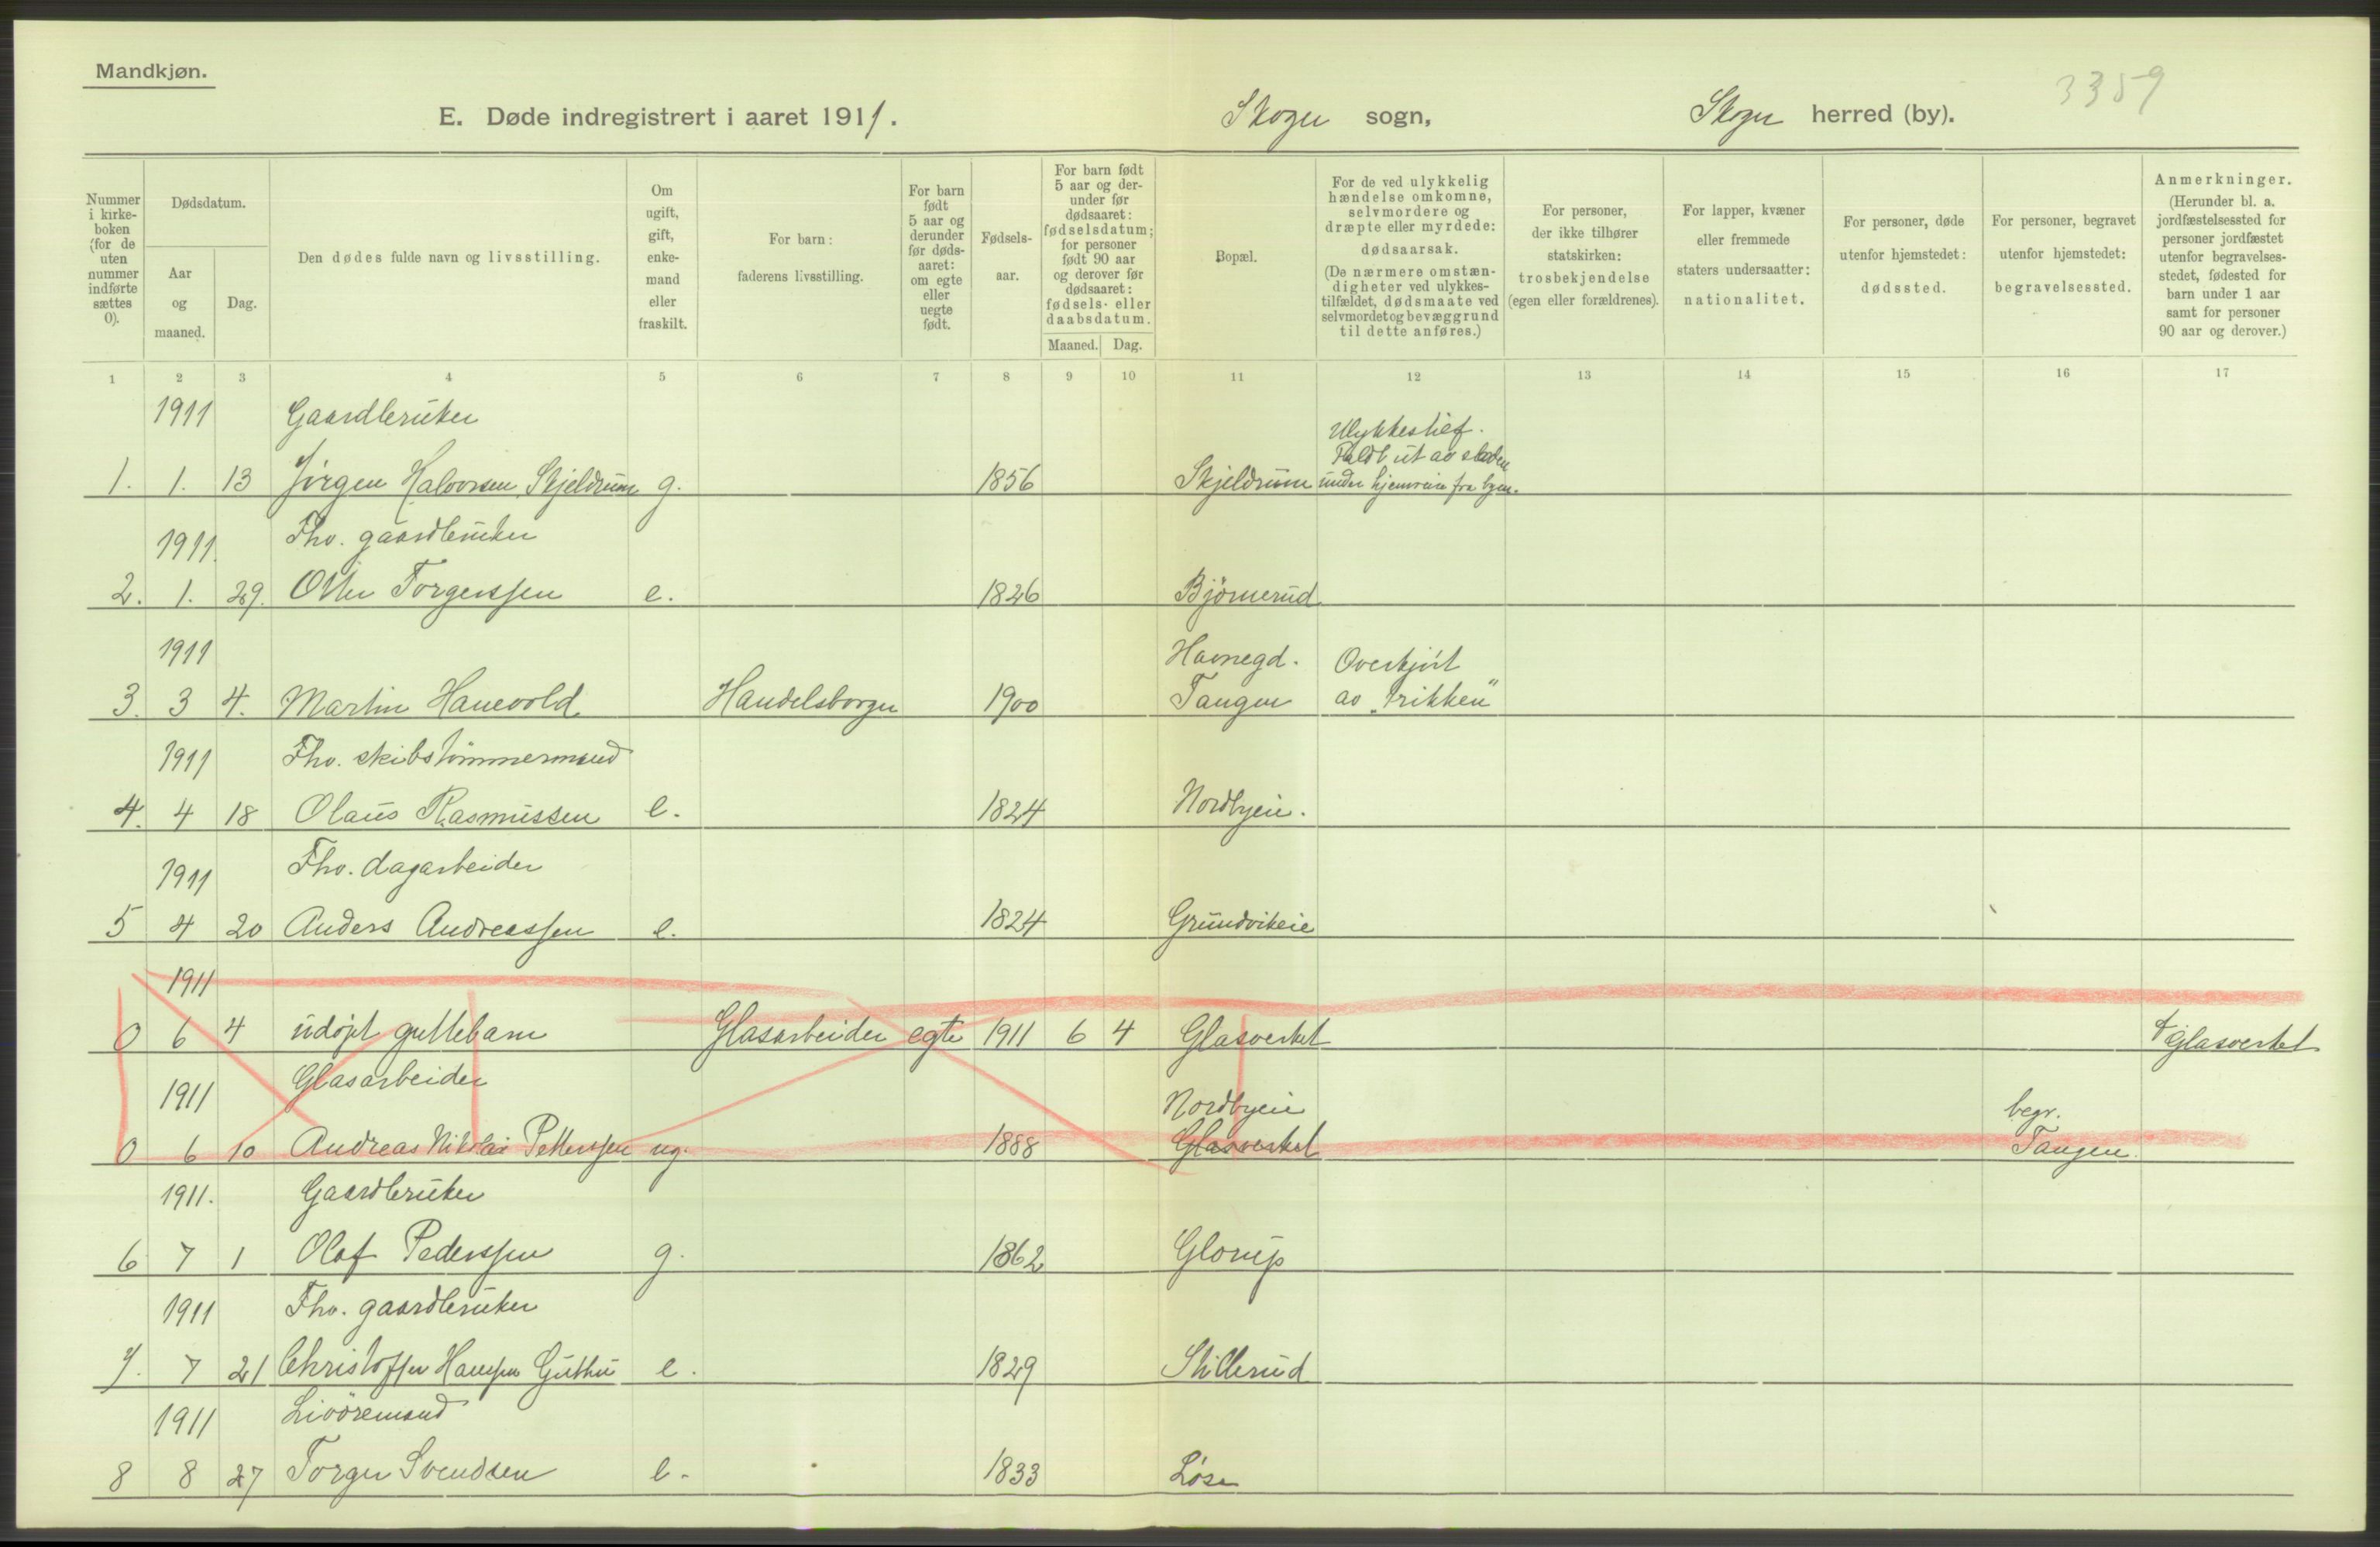 Mandkjøn.
3359
E. Døde indregistrert i aaret 1911. Skoger sogn, Skoger herred (by).
Nummer i kirke-boken (for de uten nummer indførte sættes 0).
Dødsdatum.
Aar og maaned.
Dag.
Den dødes fulde navn og livsstilling.
Om ugift, gift, enkemand eller fraskilt.
For barn: faderens livsstilling.
For barn født 5 aar og derunder før døds-aaret: om egte eller uegte født.
Fødsels-aar.
For barn født 5 aar og der-under før dødsaaret: fødselsdatum; for personer født 90 aar og derover før dødsaaret: fødsels- eller daabsdatum.
Maaned. Dag.
Bopæl.
For de ved ulykkelig hændelse omkomne, selvmordere og dræpte eller myrdede: dødsaarsak. (De nærmere omstæn-digheter ved ulykkes-tilfældet, dødsmaate ved selvmordet og bevæggrund til dette anføres.)
For personer, der ikke tilhører statskirken: trosbekjendelse (egen eller forældrenes).
For lapper, kvæner eller fremmede staters undersaatter: nationalitet.
For personer, døde utenfor hjemstedet: dødssted.
For personer, begravet utenfor hjemstedet: begravelsessted.
Anmerkninger. (Herunder bl. a. jordfæstelsessted for personer jordfæstet utenfor begravelses-stedet, fødested for barn under 1 aar samt for personer 90 aar og derover.)
1 2 3 4 5 6 7 8 9 10 11 12 13 14 15 16 17
1911 Gaardbruker Ulykkestilf.
Faldt ut av slæden
1. 1. 13 Jörgen Halvorsen Skjeldrum g. 1856 Skjeldrum under hjemreise fra byen.
1911. Fhv. gaardbruker
2. 1. 29. Otter Torgerssen e. 1826 Björnerud
1911 Havnegd. Overkjört
3. 3 4. Martin Hanevold Handelsborger 1900 Tangen av „trikken"
1911 Fhv. skibstömmermand
4. 4 18 Olaus Rasmussen e. 1824 Nordbyeie.
1911 Fhv. dagarbeider
5 4 20 Anders Andreassen e. 1824 Grundvikeie
1911
0 6 4 udöpt guttebarn Glasarbeider egte 1911 6 4 Glasverket Glasverket
1911 Glasarbeider Nordbyeie begr.
0 6 10 Andreas Nikolai Petterssen ug. 1888 Glasverket Tangen.
1911. Gaardbruker
6 7 1 Olaf Pederssen g. 1862 Glorup
1911 Fhv. gaardbruker
7. 7 21 Christoffer Hanssen Guthu e. 1829 Skillerud
1911 Livöremand
8 8 27 Torger Svendsen e. 1833